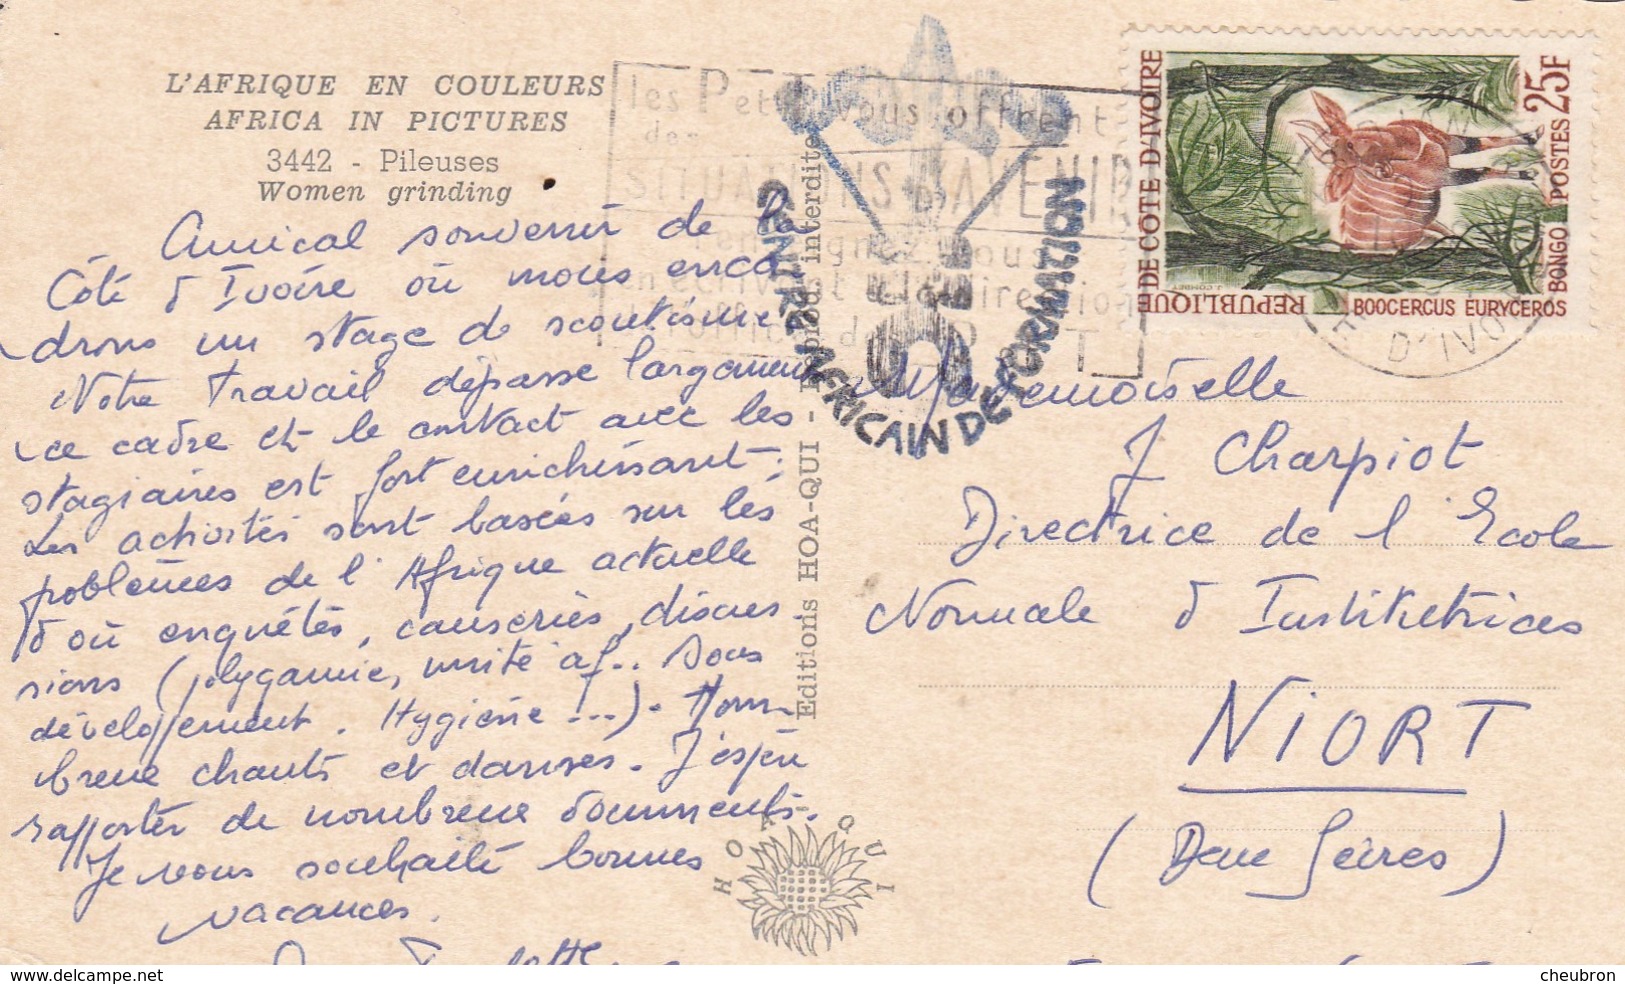 L'AFRIQUE EN COULEURS
AFRICA IN PICTURES
3442 - Pileuses
Women grinding
Amical souvenir de la
Côte d'Ivoire où nous enca
drons un stage de scoutisme.
Notre travail dépasse largement
ce cadre et le contact avec les
stagiaires est fort enrichissant :
Les activités sont basées sur les
problèmes de l'Afrique actuelle
d'où enquêtes, causeries, discus
sions (polygamie, unité af.. Sous
développement. Hygiène ...). Nom
breux chants et danses. J'espère
rapporter de nombreux documents.
Je vous souhaite bonnes
vacances.
Editions HOA-QUI - Reprod. interdite
HOA QUI
les P et T vous offrent
des
SITUATIONS D'AVENIR
renseignez vous
en écrivant à la direction
l'office des P T
CENTRE AFRICAIN DE FORMATION
REPUBLIQUE DE COTE D'IVOIRE
POSTES 25F
BONGO
BOOCERCUS EURYCEROS
J. COMBET
D'IVOIRE
Mademoiselle
J Charpiot
Directrice de l'Ecole
Normale d'Institutrices
NIORT
(Deux Sèvres)
delcampe.net
cheubron